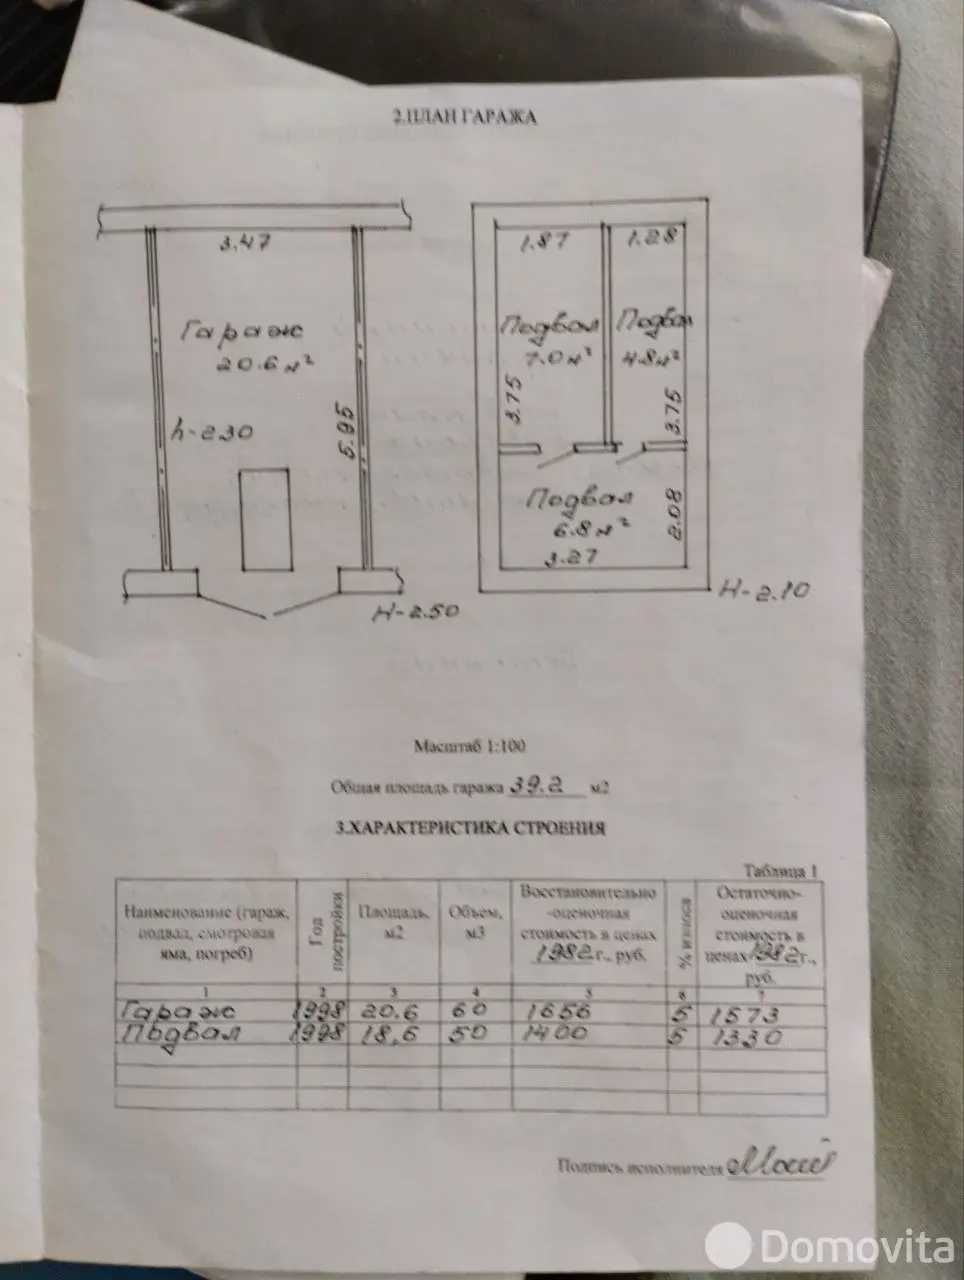 2.ПЛАН ГАРАЖА
3.47
Гараж
20.6 м²
h-2.30
5.95
H-2.50
1.87
1.28
Подвал
7.0 м²
Подвал
4.8 м²
3.75
3.75
Подвал
6.8 м²
2.08
3.27
H-2.10
Масштаб 1:100
Общая площадь гаража 39.2 м2
3.ХАРАКТЕРИСТИКА СТРОЕНИЯ
Таблица 1
Наименование (гараж, подвал, смотровая яма, погреб)
Год постройки
Площадь, м2
Объем, м3
Восстановительно-оценочная стоимость в ценах 1982 г., руб.
% износа
Остаточно-оценочная стоимость в ценах 1982 г., руб.
1 2 3 4 5 6 7
Гараж 1998 20.6 60 1656 5 1573
Подвал 1998 18,6 50 1400 5 1330
Подпись исполнителя
Domovita